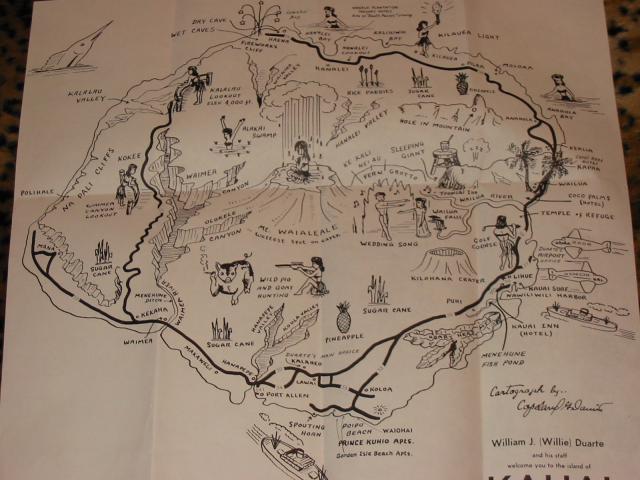 DRY CAVE
WET CAVES
FIREWORKS
CLIFF
HAENA
HANALEI
BAY
KALIHIWAI
BAY
KILAUEA LIGHT
HANALEI
LOOKOUT
HANALEI
KILAUEA
MOLOAA
KALALAU
VALLEY
KALALAU
LOOKOUT
ELEV 4,000 FT.
RICE PADDIES
SUGAR
CANE
ANAHOLA
ANAHOLA
BAY
HOLE IN MOUNTAIN
HANALEI VALLEY
ALAKAI
SWAMP
NA PALI CLIFFS
KOKEE
POLIHALE
WAIMEA
CANYON
LOOKOUT
WAIMEA
CANYON
SLEEPING
GIANT
FERN GROTTO
KEALIA
KAPAA
WAILUA
WAILUA RIVER
WAILUA
FALLS
COCO PALMS
(HOTEL)
TEMPLE OF REFUGE
OLOKELE
CANYON
MT. WAIALEALE
WETTEST SPOT ON EARTH
WEDDING SONG
GOLF
COURSE
DUARTE'S
AIRPORT
OFFICE
MANA
SUGAR
CANE
WILD PIG
AND GOAT
HUNTING
KILOHANA CRATER
LIHUE
KAUAI SURF
NAWILIWILI HARBOR
MENEHUNE
DITCH
KEKAHA
WAIMEA RIVER
WAIMEA
SUGAR CANE
PUHI
KAUAI INN
(HOTEL)
SUGAR CANE
PINEAPPLE
MENEHUNE
FISH POND
MAKAWELI
HANAPEPE
DUARTE'S MAIN OFFICE
KALAHEO
LAWAI
KOLOA
PORT ALLEN
SPOUTING
HORN
POIPU
BEACH
WAIOHAI
PRINCE KUHIO APTS.
Garden Isle Beach Apts.
Cartograph by..
William J. (Willie) Duarte
and his staff
welcome you to the island of
KAUAI